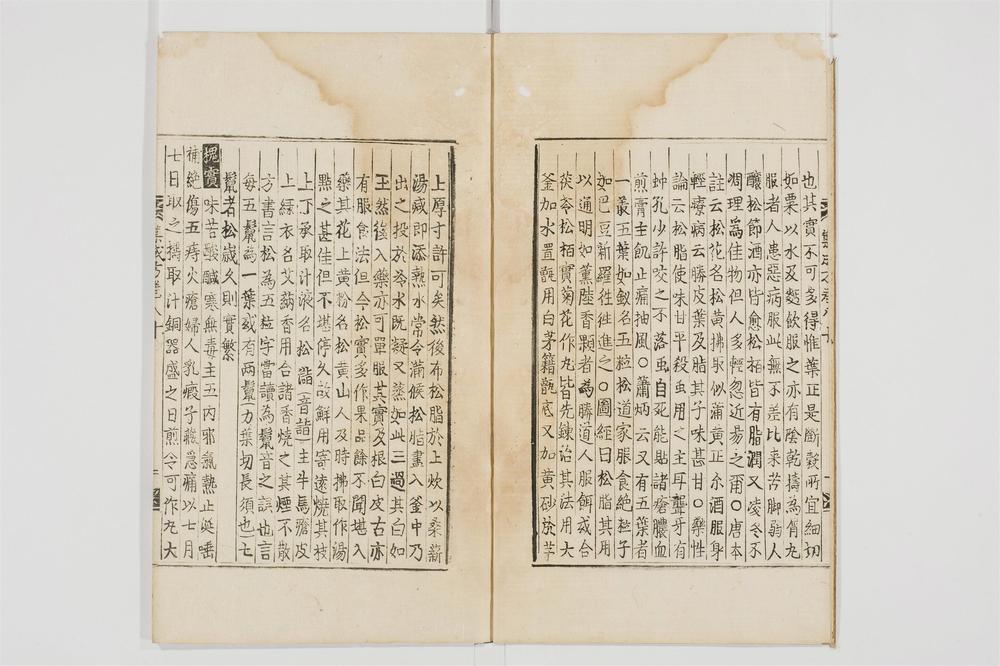 也其實不可多得惟葉正是斷穀所宜細切
如粟以水及麪飲服之亦有陰乾擣為屑丸
服者人患惡病服此無不差比来苦脚弱人
釀松節酒亦皆愈松栢皆有脂潤又凌冬不
凋理為佳物但人多輕忽近易之爾○唐本
註云松花名松黄拂取似蒲黄正尒酒服身
輕療病云勝皮葉及脂其子味甚甘○藥性
論云松脂使味甘平殺虫用之主耳聾牙有
蚛孔少許咬之不落虫自死能貼諸瘡膿血
煎膏主瘻止痛抽風○蕭炳云又有五葉者
一叢五葉如釵名五粒松道家服食絶粒子
如巴豆新羅徃徃進之○圖經曰松脂其用
以通明如薰陸香顆者為勝道人服餌或合
茯苓松栢實菊花作丸皆先鍊治其法用大
釜加水置甑用白茅籍甑底又加黄砂於茅
上厚寸許可矣然後布松脂於上炊以桑薪
湯减即添熱水常令滿候松脂盡入釜中乃
出之投於冷水既凝又蒸如此三過其白如
玉然後入藥亦可單服其實及根白皮古亦
有服食法但今松實多作果品餘不聞堪入
藥其花上黄粉名松黄山人及時拂取作湯
點之甚佳但不堪停久故鮮用寄遠燒其枝
上下承取汁液名松㵽音諧主牛馬瘡皮
上綠衣名艾蒳香用合諸香燒之其煙不散
方書言松為五粒字當讀為鬛音之誤也言
每五鬛為一葉或有兩鬛力葉切長須也七
鬛者松歲久則實繁
槐實味苦酸鹹寒無毒主五内邪氣熱止涎唾
補絶傷五痔火瘡婦人乳瘕子臟急痛以七月
七日取之擣取汁銅器盛之日煎令可作丸大